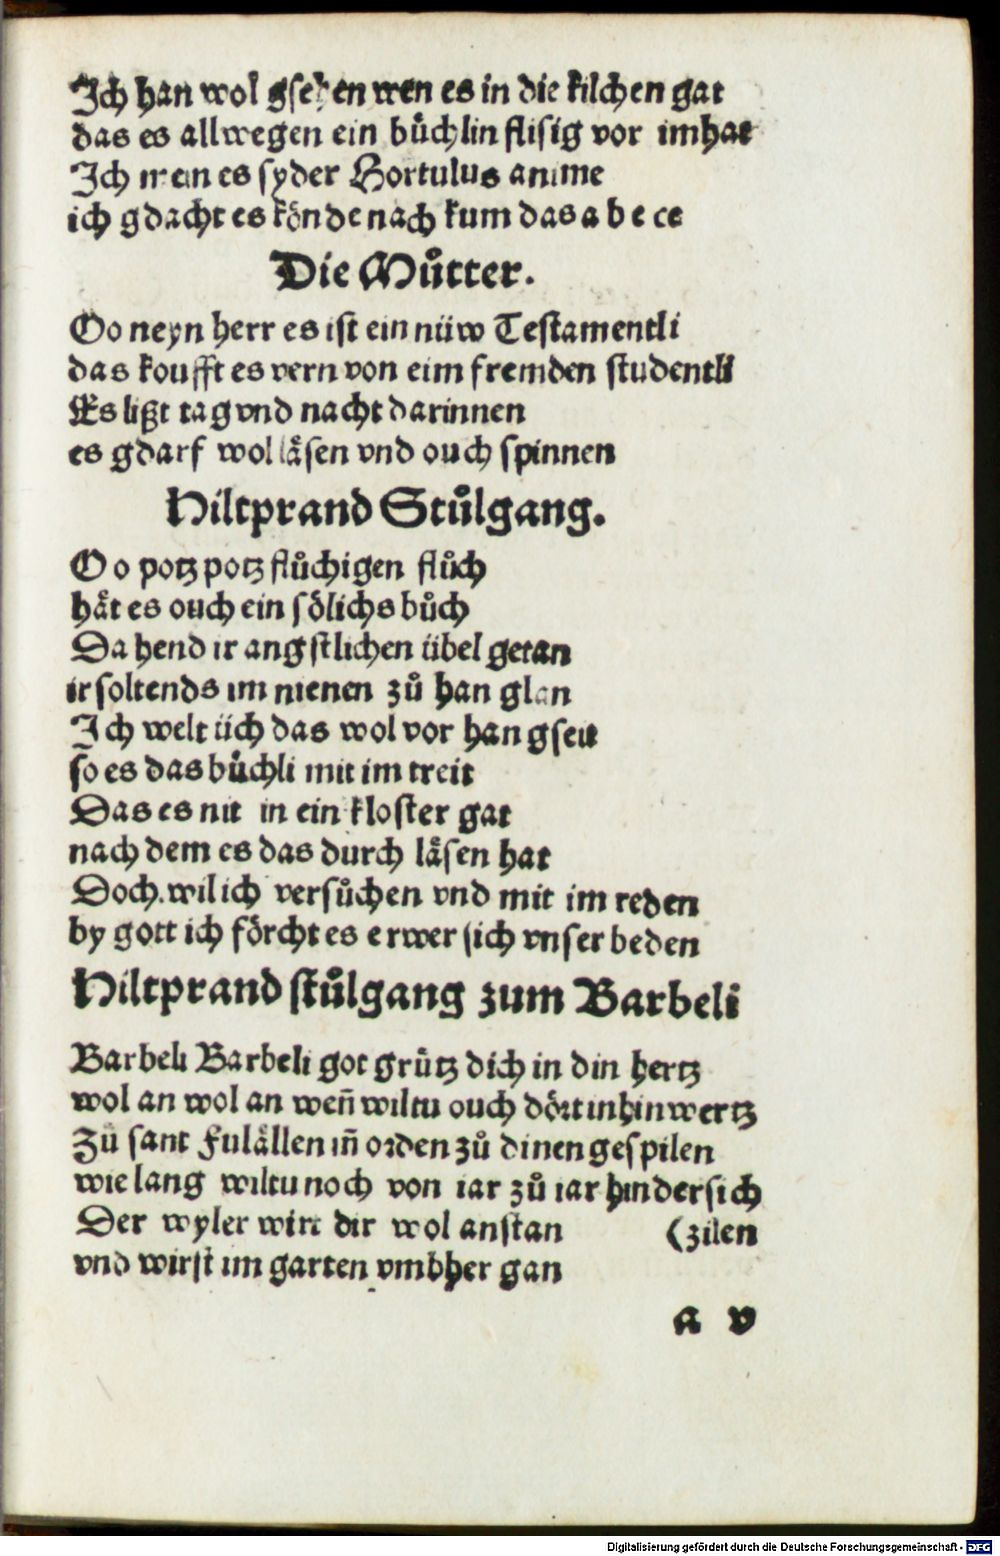 Ich han wol gsehen wen es in die kilchen gat
das es allwegen ein bůchlin flisig vor im hat
Ich mein es syder Hortulus anime
ich gdacht es könde nach kum das a b e ce
Die Můtter.
Oo neyn herr es ist ein nüw Testamentli
das koufft es vern von eim fremden studentli
Es lißt tag vnd nacht darinnen
es gdarf wol läsen vnd ouch spinnen
Hiltprand Stůlgang.
Oo potz potz flůchigen flůch
hät es ouch ein sölichs bůch
Da hend ir angstlichen übel getan
ir soltends im nienen zů han glan
Ich welt üch das wol vor han gseit
so es das bůchli mit im treit
Das es nit in ein kloster gat
nach dem es das durch läsen hat
Doch wil ich versůchen vnd mit im reden
by gott ich förcht es erwer sich vnser beden
Hiltprand stůlgang zum Barbeli
Barbeli Barbeli got grůtz dich in din hertz
wol an wol an weñ wiltu ouch dört inhin wertz
Zů sant Fulällen iñ orden zů dinen gespilen
wie lang wiltu noch von iar zů iar hindersich
Der wyler wirt dir wol anstan (zilen
vnd wirst im garten vmbher gan
a v
Digitalisierung gefördert durch die Deutsche Forschungsgemeinschaft - DFG